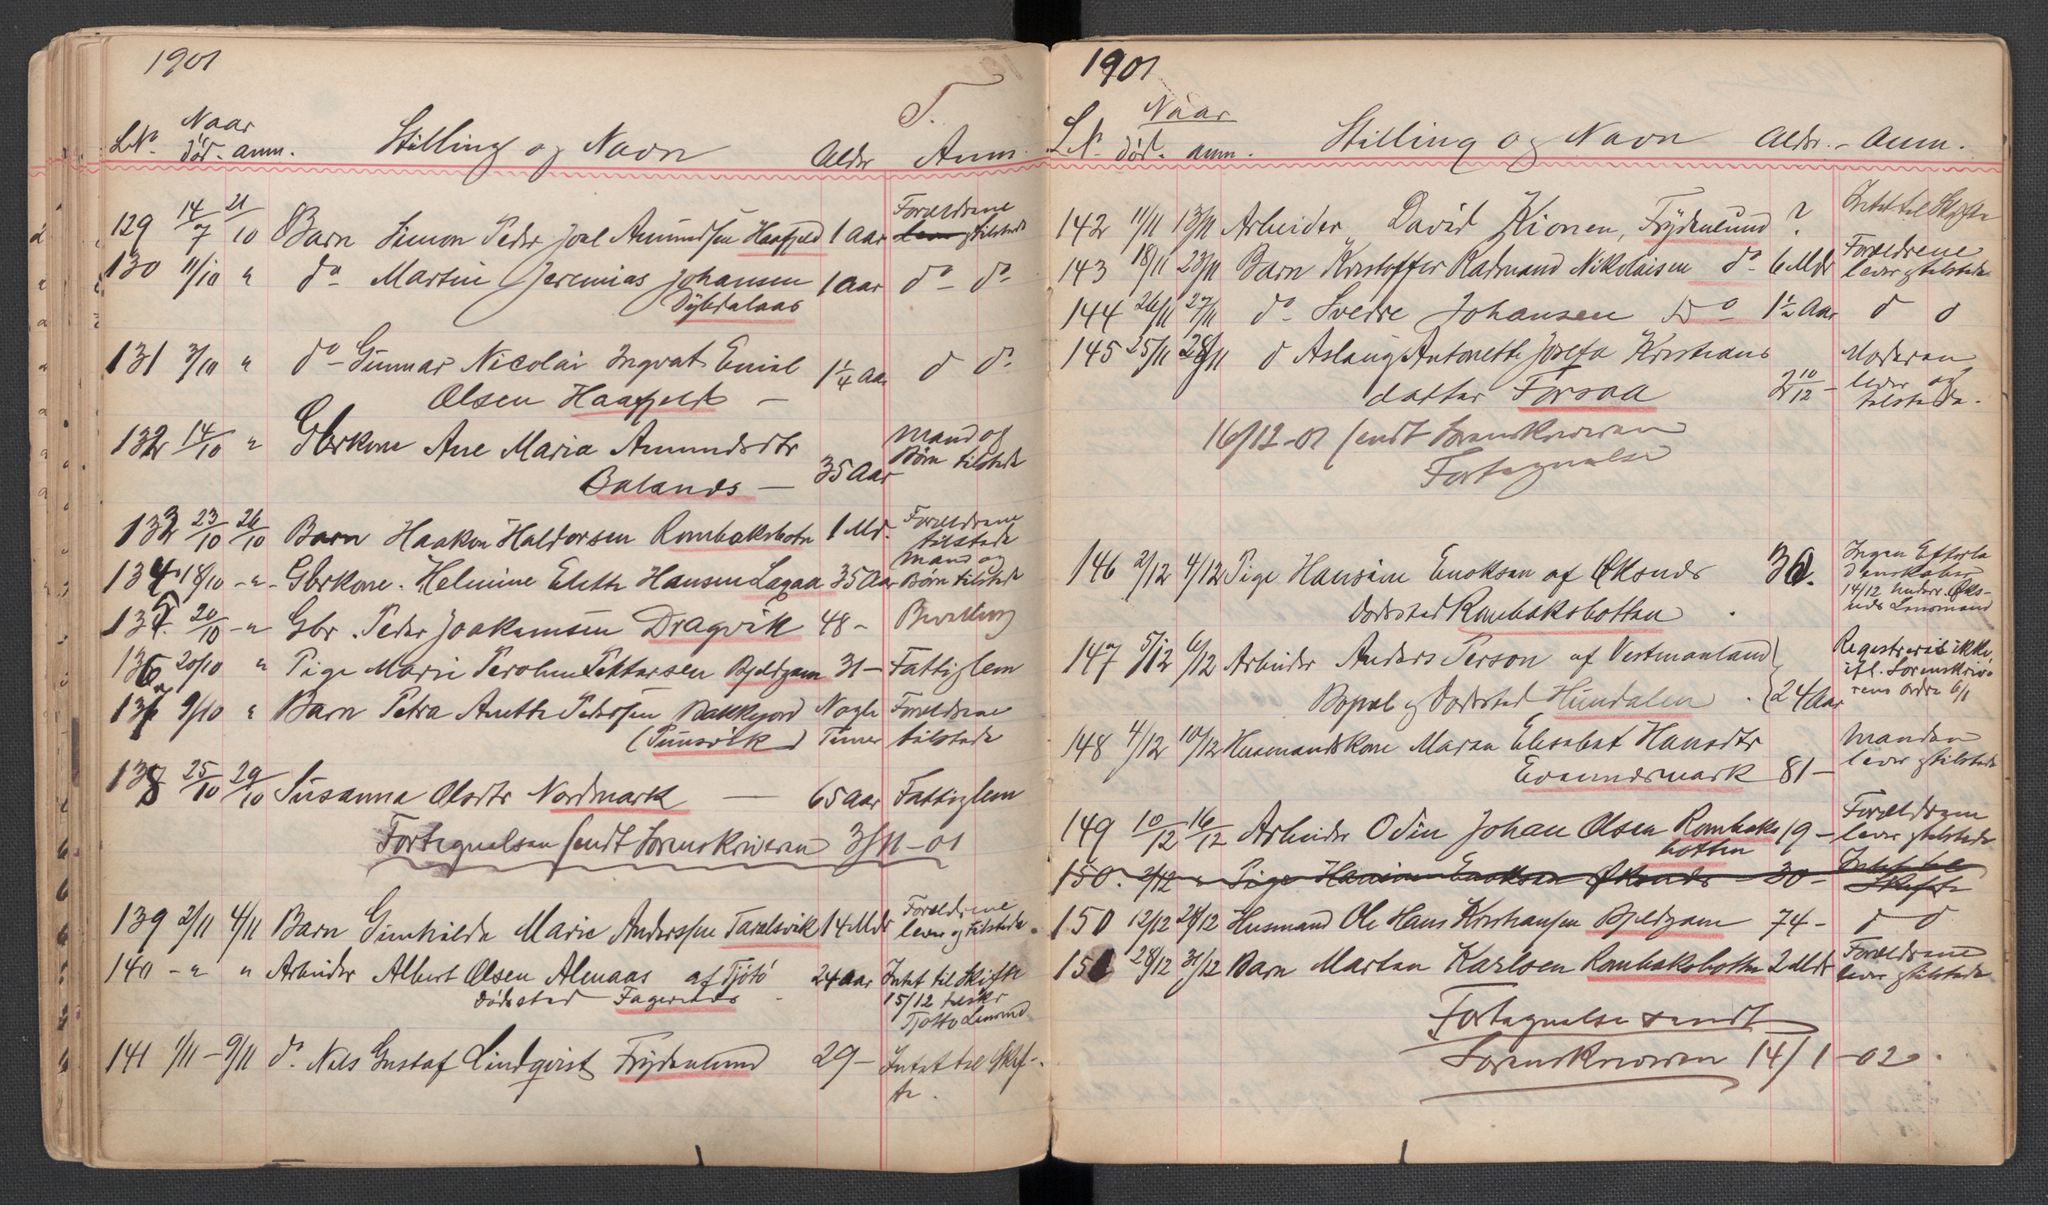 1901
T.
LNo. Naar død. anm. Stilling og Navn Alder Anm.
129 14/7 21/10 Barn Simon Peder Joel Amundsen Haafjeld 1 Aar Forældrene lever tilstede
130 11/10 " do Martin Jeremias Johansen 1 Aar do do
Dybdalaas
131 3/10 " do Gunnar Nicolai Ingvat Emil 1 1/4 Aar d do
Olsen Haafjeld —
132 14/10 " Gbrkone Ane Maria Amundsdtr Mand og
Balands — 35 Aar Børn tilstede
133 23/10 26/10 Barn Haakon Haldorsen Rombaksbotn 1 Md. Forældrene tilstede
134 18/10 " Gbrkone. Helmine Elette Hansen Laxaa 35 Aar Mand og Børn tilstede
135 20/10 " Gbr. Peder Joakimsen Dragvik 48 - Bevilling
136 20/10 " Pige Marie Pettersen Bjeldgam 31 - Fattiglem
137 9/10 " Barn Petra Anette Pedersen Bakkejord Nogle Forældrene
(Sunsvik) Timer tilstede
138 25/10 29/10 Susanna Olsdtr Nordmark — 65 Aar Fattiglem
Fortegnelsen sendt Sorenskriveren 3/11-01
139 2/11 4/11 Barn Gunhilda Marie Anderssen Taralsvik 14 Mdr Forældrene lever og tilstede.
140 - " " Arbeider Albert Olsen Almaas af Tjøtø 24 Aar Intet til Skifte
Dødssted Fagernes 15/12 tilskr Tjøtto Lensmd
141 1/11 - 9/11 do. Nils Gustaf Lindqvist Frydenlund 29 - Intet til Skifte.
1901
LNo. Naar død. anm. Stilling og Navn Alder. - Anm.
142 11/11 13/11 Arbeider David Kionen, Frydenlund ? Intet til Skifte
143 18/11 23/11 Barn Kristoffer Radmand Nikolaisen do 6 Mdr Forældrene lever tilstede
144 26/11 27/11 do Sverre Johansen Do 1 1/2 Aar d d
145 25/11 28/11 d Aslaug Antonette Josefa Kristians Moderen
datter Forsaa 2 10/12 - lever og tilstede.
16/12-01 sendt Sorenskriveren
Fortegnelse
146 2/12 4/12 Pige Hansine Enoksen af Øksnes 30. Ingen Efterladenskaber
Dødssted Rombaksbotten . 14/12 underr. Øksnes Lensmand
147 5/12 6/12 Arbeider Anders Person af Vestmanland Registreres ikke
Bopæl og Dødssted Hundalen . 24 Aar efl. Sorenskriverens Ordre 6/1
148 4/12 10/12 Husmandskone Maren Elisabet Hansdtr Manden
Evenesmark 81 - lever tilstede
149 10/12 16/12 Arbeider Odin Johan Olsen Rombaks 19 - Forældrene
botten lever tilstede
150. 2/12 " Pige Hansine Enoksen Øksnes - 30 - Intet til Skifte
150 12/12 28/12 Husmand Ole Hans Kristiansen Bjeldgam 74 - d d
151 28/12 31/12 Barn Martan Karlsen Rombaksbotten 2 Mdr Forældrene lever tilstede
Fortegnelse sendt
Sorenskriveren 14/1-02.